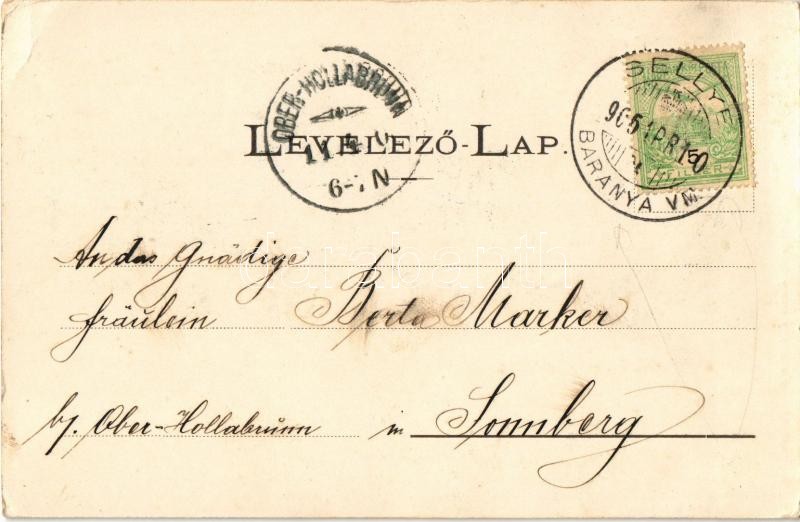 SELLYE
905 APR 10
BARANYA VM.
5
FILLER
OBER-HOLLABRUNN
11 4
6-7 N
LEVELEZŐ-LAP.
An das Gnädige
fräulein Berta Marker
b/. Ober-Hollabrunn in Sonnberg
darabanth